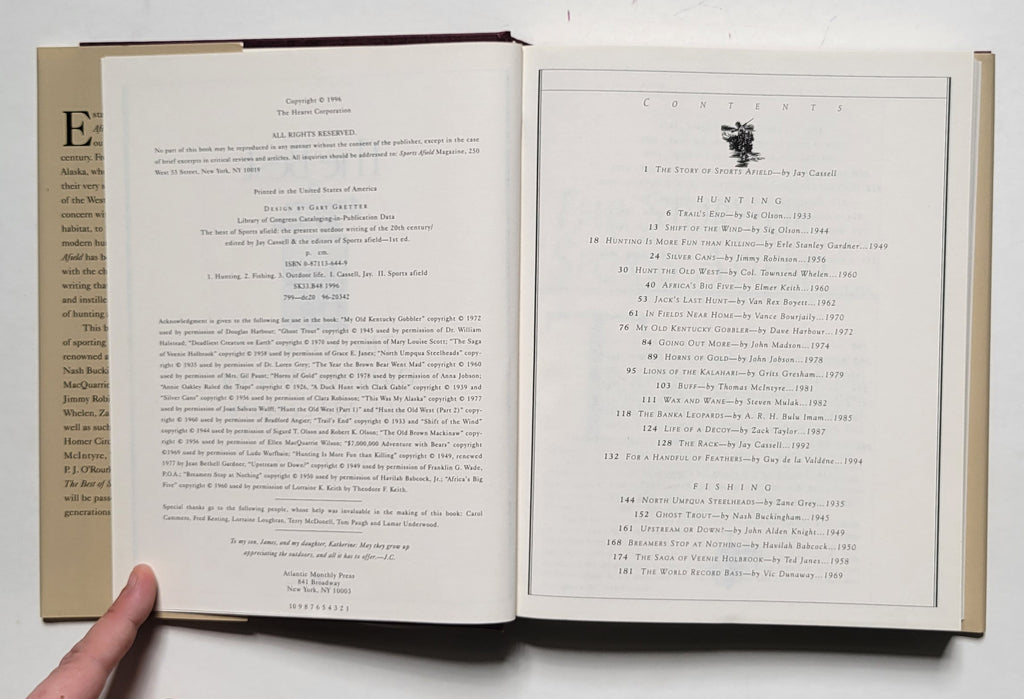 E
century. Fr
Alaska, wh
their very
of the Wes
concern wi
habitat, to
modern hu
Afield has b
with the ch
writing tha
and instille
of hunting
This b
of sporting
renowned a
Nash Bucki
MacQuarrie
Jimmy Robi
Whelen, Za
well as such
Homer Circ
McIntyre,
P. J. O'Rour
The Best of S
will be pass
generations
Copyright © 1996
The Hearst Corporation
ALL RIGHTS RESERVED.
No part of this book may be reproduced in any manner without the consent of the publisher, except in the case
of brief excerpts in critical reviews and articles. All inquiries should be addressed to: Sports Afield Magazine, 250
West 55 Street, New York, NY 10019
Printed in the United States of America
DESIGN BY GARY GRETTER
Library of Congress Cataloging-in-Publication Data
The best of Sports afield: the greatest outdoor writing of the 20th century/
edited by Jay Cassell & the editors of Sports afield—1st ed.
p. cm.
ISBN 0-87113-644-9
1. Hunting. 2. Fishing. 3. Outdoor life. I. Cassell, Jay. II. Sports afield
SK33.B48 1996
799—dc20 96-20342
Acknowledgment is given to the following for use in the book: "My Old Kentucky Gobbler" copyright © 1972
used by permission of Douglas Harbour; "Ghost Trout" copyright © 1945 used by permission of Dr. William
Halstead; "Deadliest Creature on Earth" © 1970 used by permission of Mary Louise Scott; "The Saga
of Veenie Holbrook" copyright © 1958 used by permission of Grace E. Janes; "North Umpqua Steelheads" copy-
right © 1935 used by permission of Dr. Loren Grey; "The Year the Brown Bear Went Mad" copyright © 1960
used by permission of Mrs. Gil Paust; "Horns of Gold" copyright © 1978 used by permission of Anna Jobson;
"Annie Oakley Ruled the Traps" copyright © 1926, "A Duck Hunt with Clark Gable" copyright © 1939 and
"Silver Cans" copyright © 1956 used by permission of Clara Robinson; "This Was My Alaska" copyright © 1977
used by permission of Joan Salvato Wulff; "Hunt the Old West (Part 1)" and "Hunt the Old West (Part 2)" copy-
right © 1960 used by permission of Bradford Angier; "Trail's End" copyright © 1933 and "Shift of the Wind"
copyright © 1944 used by permission of Sigurd T. Olson and Robert K. Olson; "The Old Brown Mackinaw" copy-
right © 1956 used by permission of Ellen MacQuarrie Wilson; "$7,000,000 Adventure with Bears" copyright
©1969 used by permission of Ludo Wurfbain; "Hunting Is More Fun than Killing" copyright © 1949, renewed
1977 by Jean Bethell Gardner; "Upstream or Down?" copyright © 1949 used by permission of Franklin G. Wade,
P.O.A.; "Breamers Stop at Nothing" copyright © 1950 used by permission of Havilah Babcock, Jr.; "Africa's Big
Five" copyright © 1960 used by permission of Lorraine K. Keith by Theodore F. Keith.
Special thanks go to the following people, whose help was invaluable in the making of this book: Carol
Cammero, Fred Kesting, Lorraine Loughran, Terry McDonell, Tom Paugh and Lamar Underwood.
To my son, James, and my daughter, Katherine: May they grow up
appreciating the outdoors, and all it has to offer.—J.C.
Atlantic Monthly Press
841 Broadway
New York, NY 10003
10 9 8 7 6 5 4 3 2 1
CONTENTS
1 THE STORY OF SPORTS AFIELD—by Jay Cassell
HUNTING
6 TRAIL'S END—by Sig Olson...1933
13 SHIFT OF THE WIND—by Sig Olson...1944
18 HUNTING IS MORE FUN THAN KILLING—by Erle Stanley Gardner...1949
24 SILVER CANS—by Jimmy Robinson...1956
30 HUNT THE OLD WEST—by Col. Townsend Whelen...1960
40 AFRICA'S BIG FIVE—by Elmer Keith...1960
53 JACK'S LAST HUNT—by Van Rex Boyett...1962
61 IN FIELDS NEAR HOME—by Vance Bourjaily...1970
76 MY OLD KENTUCKY GOBBLER—by Dave Harbour...1972
84 GOING OUT MORE—by John Madson...1974
89 HORNS OF GOLD—by John Jobson...1978
95 LIONS OF THE KALAHARI—by Grits Gresham...1979
103 BUFF—by Thomas McIntyre...1981
111 WAX AND WANE—by Steven Mulak...1982
118 THE BANKA LEOPARDS—by A. R. H. Bulu Imam...1985
124 LIFE OF A DECOY—by Zack Taylor...1987
128 THE RACK—by Jay Cassell...1992
132 FOR A HANDFUL OF FEATHERS—by Guy de la Valdéne...1994
FISHING
144 NORTH UMPQUA STEELHEADS—by Zane Grey...1935
152 GHOST TROUT—by Nash Buckingham...1945
161 UPSTREAM OR DOWN?—by John Alden Knight...1949
168 BREAMERS STOP AT NOTHING—by Havilah Babcock...1950
174 THE SAGA OF VEENIE HOLBROOK—by Ted Janes...1958
181 THE WORLD RECORD BASS—by Vic Dunaway...1969